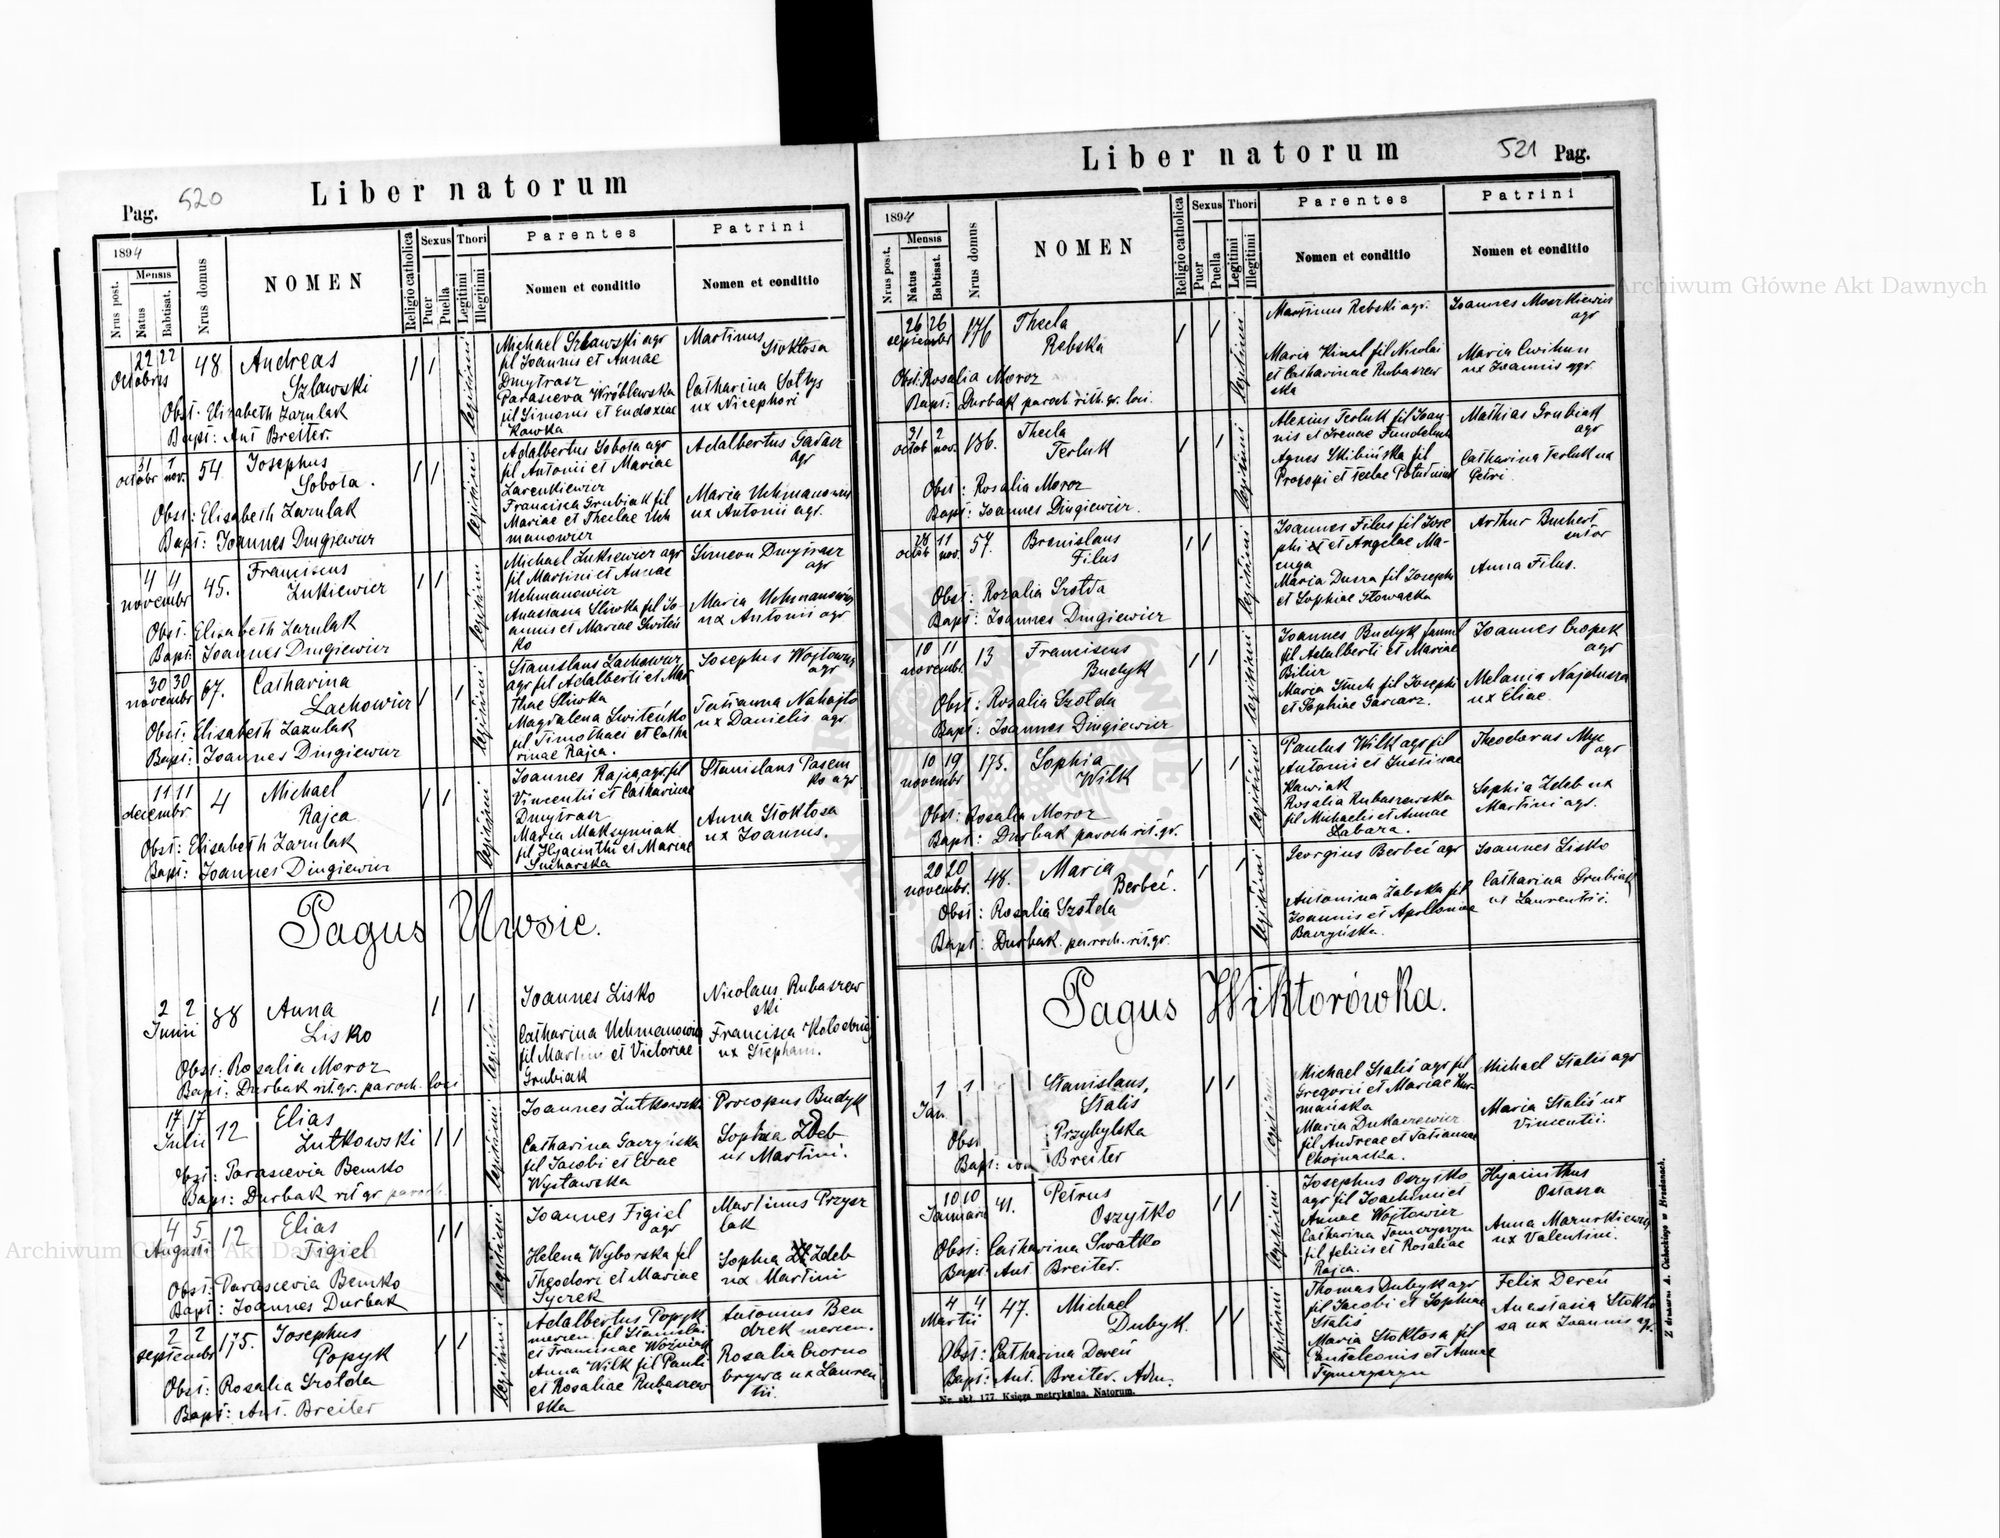 Pag. 520
Liber natorum
1894
Mensis
Nrus post.
Natus
Babtisat.
Nrus domus
NOMEN
Religio catholica
Sexus
Puer
Puella
Thori
Legitimi
Illegitimi
Parentes
Nomen et conditio
Patrini
Nomen et conditio
22 22
Octobris
48
Andreas
Szlawski
Obst. Elisabeth Zazulak
Bapt: Ant Breiter.
legitimi
Michael Szlawski agr
fil Joannis et Annae
Dmytrasz
Parasceva Wróblewska
fil Simonis et Eudoxiae
Kawka
Martinus
Stoktosa
Catharina Soltys
ux Nicephori
31 1
octobr nov.
54
Josephus
Sobota.
Obst: Elisabeth Zazulak
Bapt: Joannes Dingiewicz
legitimi
Adalbertus Sobota agr
fil Antonii et Mariae
Francisca Grubiak fil
Mariae et Theclae Uch
manowicz
Adalbertus
agr
Maria Uchmanowicz
ux Antonii agr.
4 4
novembr
45.
Franciscus
Lukiewicz
Obst. Elisabeth Zazulak
Bapt: Joannes Dingiewicz
legitimi
Michael Lukiewicz agr
fil Martini et Annae
Uchmanowicz
Anastasia Sliwka fil Jo-
annis et Mariae Switeń
ko
Simeon Dmytrasz
agr
Maria Uchmanowicz
ux Antonii agr
30 30
novembr
67.
Catharina
Lachowicz
Obst: Elisabeth Zazulak
Bapt: Joannes Dingiewicz
legitimi
Stanislaus Lachowicz
agr fil Adalberti et Mar
thae Sliwka
Magdalena Switeńko
fil. Timothaei et Catha
rinae Rajca.
Josephus Wojtowicz
agr
Tatianna Nahajło
ux Danielis agr
11 11
decembr
4
Michael
Rajca
Obst: Elisabeth Zazulak
Bapt: Joannes Dingiewicz
legitimi
Joannes Rajca agr fil
Vincentii et Catharinae
Dmytrasz
Maria Maksymiak
fil Hyacinthi et Mariae
Sucharska
Stanislaus Pasem
ko agr
Anna Stoktosa
ux Joannis.
Pagus Urosie.
2 2
Junii
88
Anna
Lisko
Obst: Rosalia Moroz
Bapt: Durbak rit. gr. paroch. loci
Joannes Lisko
Catharina Uchmanowicz
fil Martini et Victoriae
Grubiak
Nicolaus Rubaszew
ski
Francisca
ux Stephani.
17 17
Julii
12
Elias
Lutkowski
Obst: Parascevia Bemko
Bapt: Durbak rit gr paroch.
legitimi
Joannes Lutkowski
Catharina
fil Jacobi et Evae
Wysławska
Procopus Budyk
Sophia Zdeb
ux Martini.
4 5
Augusti
12
Elias
Figiel
Obst: Parascevia Bemko
Bapt: Joannes Durbak
legitimi
Joannes Figiel
agr
Helena Wyborska fil
Theodori et Mariae
Sycrek
Martinus Przysz
lak
Sophia Zdeb
ux Martini
2 2
septembr
175.
Josephus
Popyk
Obst: Rosalia Szotda
Bapt: Ant. Breiter
legitimi
Adalbertus Popyk
mercen. fil Stanislai
et Franciscae Woźniak
Anna Wilk fil Pauli
et Rosaliae Rubaszew
ska
Antonius Ben
drek mercen.
Rosalia Czorno
brywa ux Lauren
tii.
Liber natorum
521 Pag.
1894
Mensis
Nrus post.
Natus
Babtisat.
Nrus domus
NOMEN
Religio catholica
Sexus
Puer
Puella
Thori
Legitimi
Illegitimi
Parentes
Nomen et conditio
Patrini
Nomen et conditio
26 26
septembr
176
Thecla
Rebska
Obst: Rosalia Moroz
Bapt: Durbak paroch rith. gr. loci.
legitimi
Martinus Rebski agr.
Maria Kinal fil Nicolai
et Catharinae Rubaszew
ska
Joannes Moszkiewicz
agr
Maria Cwihun
ux Joannis agr.
31 2
octob nov.
186.
Thecla
Terluk
Obst: Rosalia Moroz
Bapt: Joannes Dingiewicz.
legitimi
Alexius Terluk fil Joan-
nis et Irenae
Agnes Skibińska fil
Procopi et Teclae
Mathias Grubiak
agr
Catharina Terluk ux
Petri.
28 11
octob nov.
57.
Bronislaus
Filus
Obst: Rozalia Szotda
Bapt: Joannes Dingiewicz
legitimi
Joannes Filus fil Jose
phi et Angelae Ma-
zuga
Maria Duzra fil Josephi
et Sophiae Glowacka
Arthur Buchert
sutor
Anna Filus.
10 11
novembr.
13
Franciscus
Budyk
Obst: Rosalia Szotda
Bapt: Joannes Dingiewicz
legitimi
Joannes Budyk famul
fil Adalberti et Mariae
Bilicz
Maria Such fil Josephi
et Sophiae Garcarz.
Joannes Czopek
agr
Melania Najduszra
ux Eliae.
10 19
novembr
175.
Sophia
Wilk
Obst: Rosalia Moroz
Bapt: Durbak paroch rit. gr.
legitimi
Paulus Wilk agr fil
Antonii et Justinae
Kawiak
Rosalia Rubaszewska
fil Michaelis et Annae
Labaza.
Theodorus Myc
agr
Sophia Zdeb ux
Martini agr.
20 20
novembr.
48.
Maria
Berbeć.
Obst: Rosalia Szotda
Bapt: Durbak paroch. rit. gr.
legitimi
Georgius Berbeć agr
Antonina Żabska fil
Joannis et Apolloniae
Baczyńska.
Joannes Lisko
Catharina Grubiak
ux Laurentii.
Pagus Wiktorówka.
1 1
Jan.
Stanislaus,
Staliś
Obst
Przybylska
Bapt:
Breiter
Michael Staliś agr fil
Gregorii et Mariae Kur-
mańska
Maria Dukaczewicz
fil Andreae et Tatiannae
Chojnacka.
Michael Staliś agr
Maria Staliś ux
Vincentii.
10 10
Januarii
41.
Petrus
Oszytko
Obst: Catharina Swatko
Bapt: Ant. Breiter.
legitimi
Josephus Oszytko
agr fil Joachimi et
Annae Wojtowicz
Catharina Tomczyszyn
fil felicis et Rosaliae
Rajca.
Hyacinthus
Ostasza
Anna Mazurkiewicz
ux Valentini.
4 4
Martii
47.
Michael
Dubyk.
Obst: Catharina Dereń
Bapt: Ant. Breiter. Adm.
legitimi
Thomas Dubyk agr
fil Jacobi et Sophiae
Staliś
Maria Stoktosa fil
Panteleonis et Annae
Tymczyszyn
Felix Dereń
Anastasia Stokto
sa ux Joannis agr.
Nr. skł. 177. Księga metrykalna. Natorum.
Z drukarni A. Cichockiego w Brzeżanach.
Archiwum Główne Akt Dawnych
Archiwum Główne Akt Dawnych